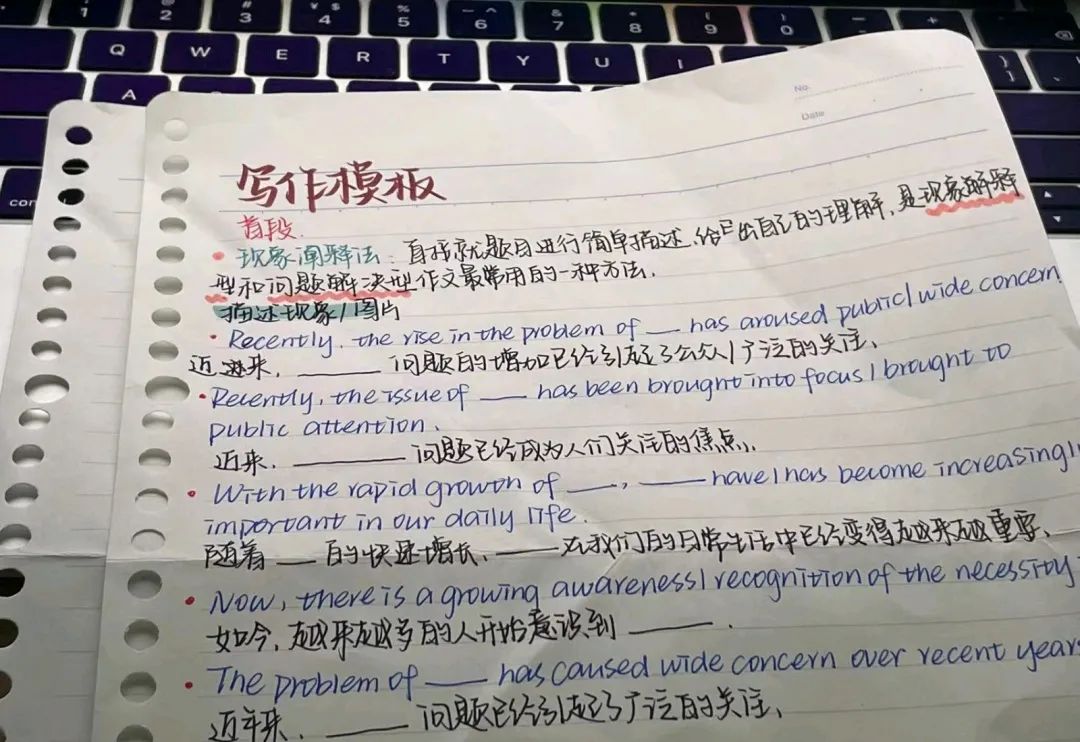 1 2 3 4 5 6 7 8 9
Q W E R T Y U I
A
No.
Date
con
写作模板
首段.
• 现象阐释法: 直接就题目进行简单描述、给出自己的理解, 是现象解释
型和问题解决型作文最常用的一种方法.
描述现象/图片
• Recently, the rise in the problem of ___ has aroused public/wide concern.
近来, ______ 问题的增加已经引起了公众/广泛的关注、
• Recently, the issue of ___ has been brought into focus/brought to
public attention.
近来, ______ 问题已经成为人们关注的焦点、
• With the rapid growth of ___, ___ have/has become increasingl
important in our daily life.
随着 ___ 的快速增长、___ 在我们的日常生活中已经变得越来越重要、
• Now, there is a growing awareness/recognition of the necessity
如今, 越来越多的人开始意识到 ______.
• The problem of ___ has caused wide concern over recent year
近年来, ______ 问题已经引起了广泛的关注、